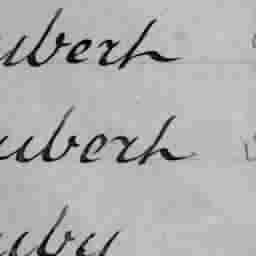 ubert
ubert
uby